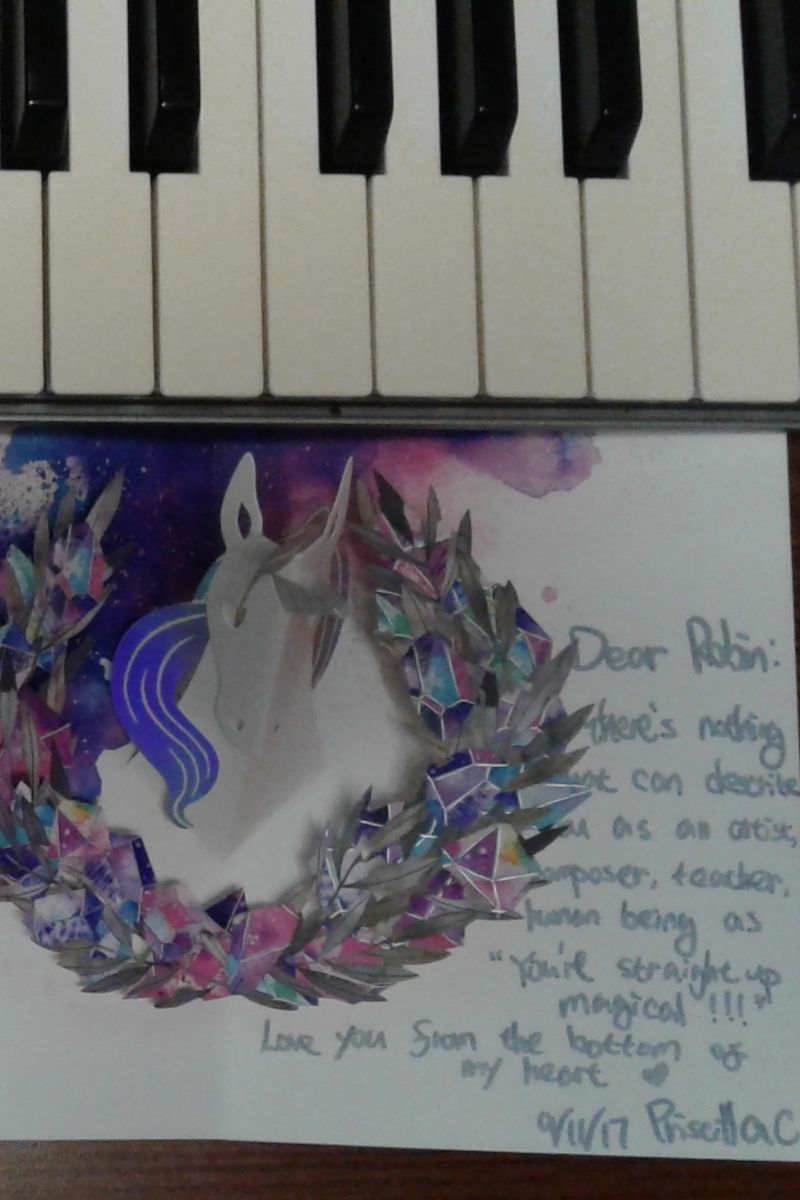 Dear Robin:
there's nothing
can describe
as an artist,
composer, teacher,
human being as
"You're straight up
magical !!!"
Love you from the bottom of
my heart ♥
9/11/17 Priscilla C